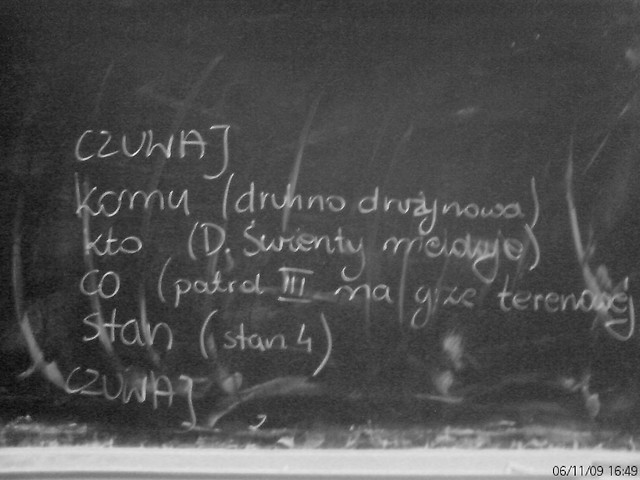 CZUWAJ
komu (druhno drużynowa)
kto (D. Świenty melduje)
co (patrol III na grze terenowej
stan (stan 4)
CZUWAJ
06/11/09 16:49